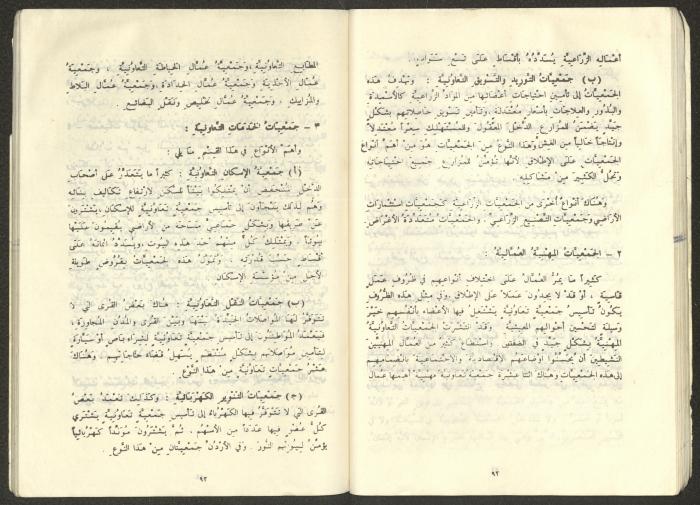 أعماله الزراعية يسدده بأقساط على تسع سنوات .
(ب) جمعيات التوريد والتسويق التعاونية : وتهدف هذه
الجمعيات إلى تأمين احتياجات أعضائها من المواد الزراعية كالأسمدة
والبذور والعلاجات بأسعار معتدلة وتأمين تسويق حاصلاتهم بشكل
جيد يضمن للمزارع الدخل المعقول وللمستهلك سعراً معتدلاً
وإنتاجاً خالياً من الغش وهذا النوع من الجمعيات هو من أهم أنواع
الجمعيات على الإطلاق لأنها تؤمن للمزارع جميع احتياجاته
وتحل الكثير من مشاكله .
وهناك أنواع أخرى من الجمعيات الزراعية كجمعيات استثمارات
الأراضي وجمعيات التصنيع الزراعي . والجمعيات متعددة الأغراض
٢ – الجمعيات المهنية العمالية :
كثيراً ما يمر العمال على اختلاف أنواعهم في ظروف عمل
قاسية ، أو قد لا يجدون عملا على الإطلاق وفي مثل هذه الظروف
يكون تأسيس جمعية تعاونية يشتغل فيها الأعضاء بأنفسهم خير
وسيلة لتحسين أحوالهم المعيشية . وقد انتشرت الجمعيات التعاونية
المهنية بشكل جيد في الضفتين واستطاع كثير من العمال المهنيين
النشيطين أن يحسنوا أوضاعهم الاقتصادية والاجتماعية بانضمامهم
إلى هذه الجمعيات وهناك اثنتا عشرة جمعية تعاونية مهنية أهمها عمال
٩٢
المطابع التعاونية ، وجمعية عمال الخياطة التعاونية ، وجمعية
عمال الأحذية وجمعية عمال الحدادة وجمعية عمال البلاط
والموزاييك ، وجمعية عمال تخليص ونقل البضائع .
٣ – جمعيات الخدمات التعاونية :
وأهم الأنواع في هذا القسم ما يلي :
(أ) جمعية الإسكان التعاونية : كثيراً ما يتعذر على أصحاب
الدخل المنخفض أن يمتلكوا بيتاً للسكن لارتفاع تكاليف بنائه
وهم لذلك يلجأون إلى تأسيس جمعية تعاونية للإسكان يشترون
عن طريقها وبشكل جماعي مساحة من الأراضي يقيمون عليها
بيوتاً ، ويمتلك كل منهم أحد هذه البيوت ويسدد أثمانه على
أقساط حسب قدرته . وتمول هذه الجمعيات بقروض طويلة
لأجل من مؤسسة الإسكان
(ب) جمعيات النقل التعاونية : هناك بعض القرى التي لا
تتوفر لها المواصلات الجيدة بينها وبين القرى والمدن المجاورة ،
فيعمد المواطنون إلى تأسيس جمعية تعاونية لشراء باص أو سيارة
لتأمين مواصلاتهم بشكل منتظم يسهل قضاء حاجاتهم ، وهناك
عشر جمعيات تعاونية من هذا النوع .
(ج) جمعيات التنوير الكهربائية : وكذلك تعمد بعض
القرى التي لا تتوفر فيها الكهرباء إلى تأسيس جمعية تعاونية يشتري
كل عضو فيها عدداً من الأسهم . ثم يشترون مولداً كهربائياً
يؤمن لبيوتهم النور . وفي الأردن جمعيتان من هذا النوع .
٩٣